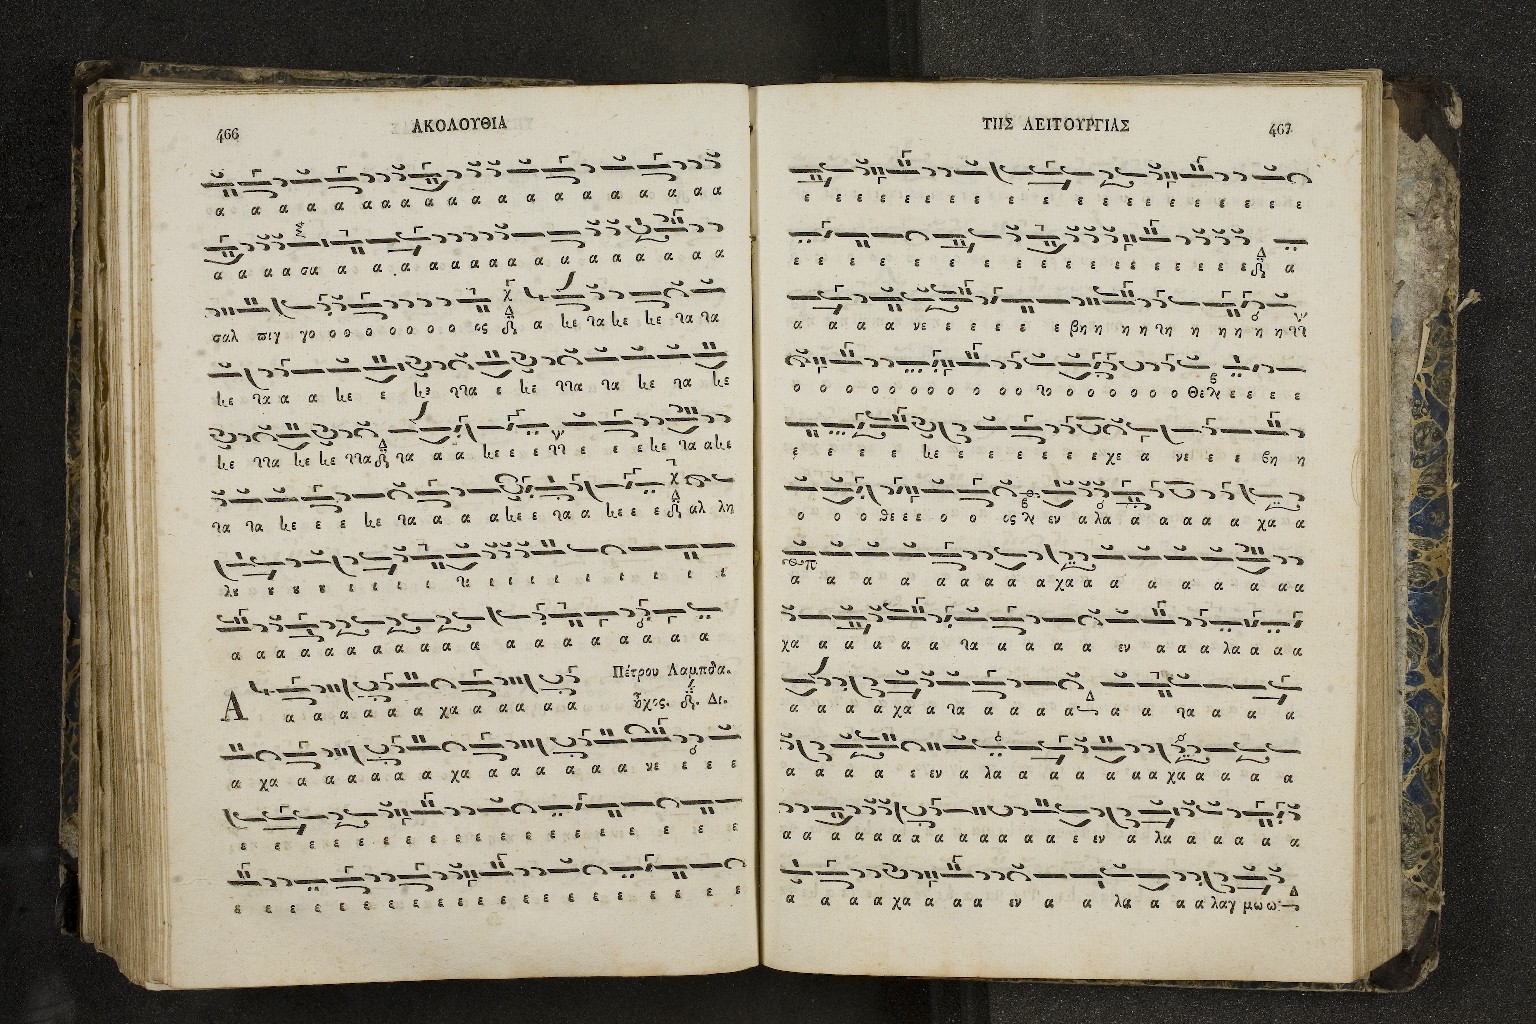 466
ΑΚΟΛΟΥΘΙΑ
α α α α α α α α α α α α α α α α α α α α
α α α α σα α α α α α α α α α α α α α α α
σαλ πιγ γο ο ο ο ο ο ο ο ο ος α κε τα κε κε τα τα
κε τα α α κε ε κε ττα ε κε ττα τα κε τα κε
κε ττα κε κε ττα τα α α κε ε ε ττ ε ε ε κε τα α κε
τα τα κε ε ε κε τα α α α κε ε τα α κε ε ε αλ λη
α α α α α α α α α α α α α α α α α α α α
Πέτρου Λαμπδα.
ἦχος. Δι.
Α α α α α α α χα α α α α α
α χα α α α α α α χα α α α α α α α νε ε ε ε
ε ε ε ε ε ε ε ε ε ε ε ε ε ε ε ε
ε ε ε ε ε ε ε ε ε ε ε ε ε ε ε ε ε ε ε
467
ΤΗΣ ΛΕΙΤΟΥΡΓΙΑΣ
ε ε ε ε ε ε ε ε ε ε ε ε ε ε ε ε ε ε ε ε
ε ε ε ε ε ε ε ε ε ε ε ε ε ε ε ε ε ε ε α
α α α α νε ε ε ε ε ε ε βη η η η τη η η η η η ττ
ο ο ο ο ο ο ο ο ο ο ο το ο ο ο ο ο ο θε ε ε ε ε
ε ε ε ε κε ε ε ε ε ε ε ε χε α νε ε ε βη η
ο ο ο θε ε ε ο ο ος εν α λα α α α α α χα α
α α α α α α α α α χα α α α α α α α α
χα α α α α α τα α α α α εν α α α λα α α α
α α α α χα α τα α α α α α α τα α α α
α α α α ε εν α λα α α α α α α α χα α α α α α
α α α α α α α α α α α α α α ε εν α λα α α α α α
α α α α χα α α α εν α α λα α α α λαγ μω ω